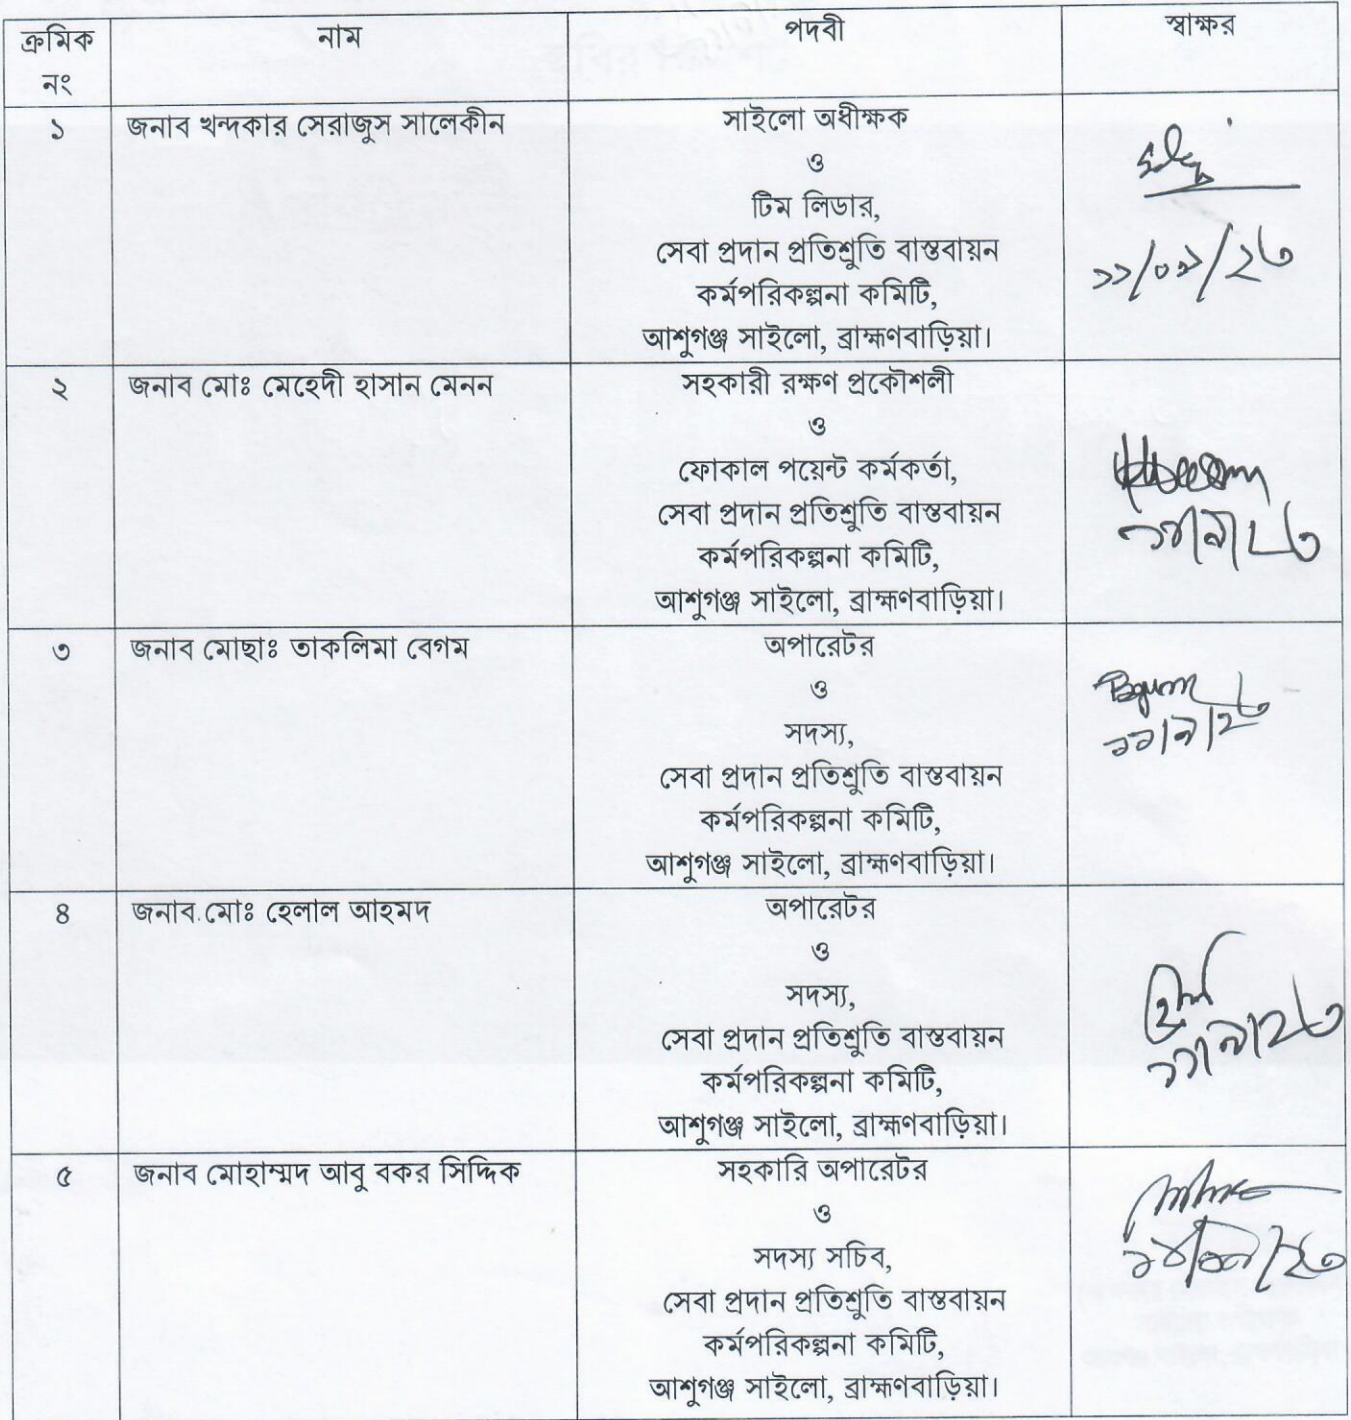 ক্রমিক নং	নাম	পদবী	স্বাক্ষর
১	জনাব খন্দকার সেরাজুস সালেকীন	সাইলো অধীক্ষক
ও
টিম লিডার,
সেবা প্রদান প্রতিশ্রুতি বাস্তবায়ন
কর্মপরিকল্পনা কমিটি,
আশুগঞ্জ সাইলো, ব্রাহ্মণবাড়িয়া।
১১/০৯/২৩
২	জনাব মোঃ মেহেদী হাসান মেনন	সহকারী রক্ষণ প্রকৌশলী
ও
ফোকাল পয়েন্ট কর্মকর্তা,
সেবা প্রদান প্রতিশ্রুতি বাস্তবায়ন
কর্মপরিকল্পনা কমিটি,
আশুগঞ্জ সাইলো, ব্রাহ্মণবাড়িয়া।
৩	জনাব মোছাঃ তাকলিমা বেগম	অপারেটর
ও
সদস্য,
সেবা প্রদান প্রতিশ্রুতি বাস্তবায়ন
কর্মপরিকল্পনা কমিটি,
আশুগঞ্জ সাইলো, ব্রাহ্মণবাড়িয়া।
Begum
১১/৯/২৩
৪	জনাব মোঃ হেলাল আহমদ	অপারেটর
ও
সদস্য,
সেবা প্রদান প্রতিশ্রুতি বাস্তবায়ন
কর্মপরিকল্পনা কমিটি,
আশুগঞ্জ সাইলো, ব্রাহ্মণবাড়িয়া।
১১/৯/২৩
৫	জনাব মোহাম্মদ আবু বকর সিদ্দিক	সহকারি অপারেটর
ও
সদস্য সচিব,
সেবা প্রদান প্রতিশ্রুতি বাস্তবায়ন
কর্মপরিকল্পনা কমিটি,
আশুগঞ্জ সাইলো, ব্রাহ্মণবাড়িয়া।